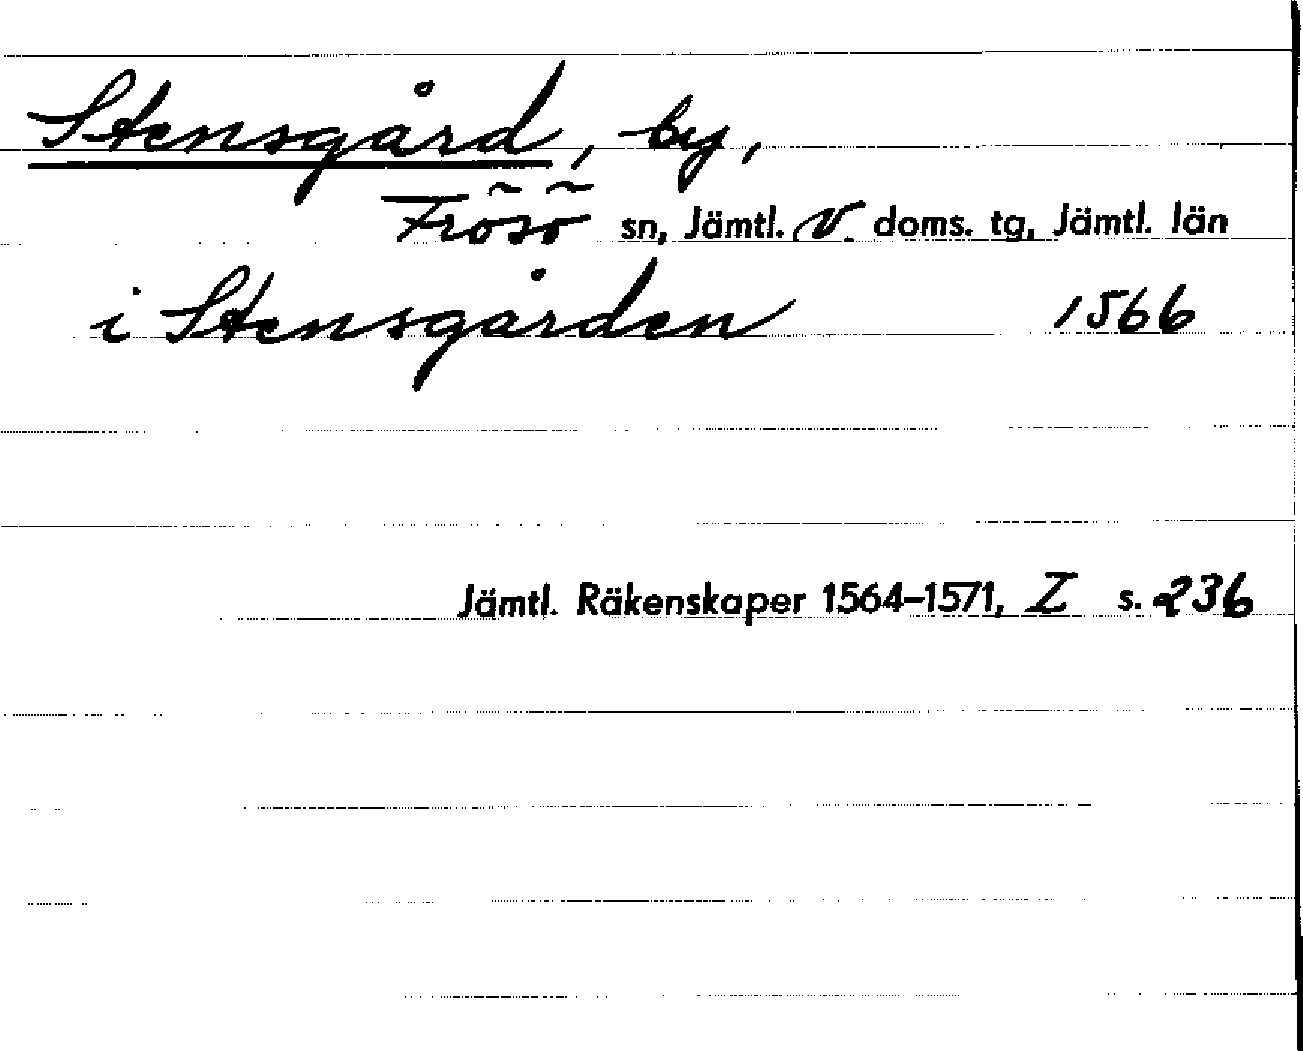 Stensgård, by,
Frösö sn, Jämtl. v. doms. tg, Jämtl. län
i Stensgården 1566
Jämtl. Räkenskaper 1564–1571, I s. 236